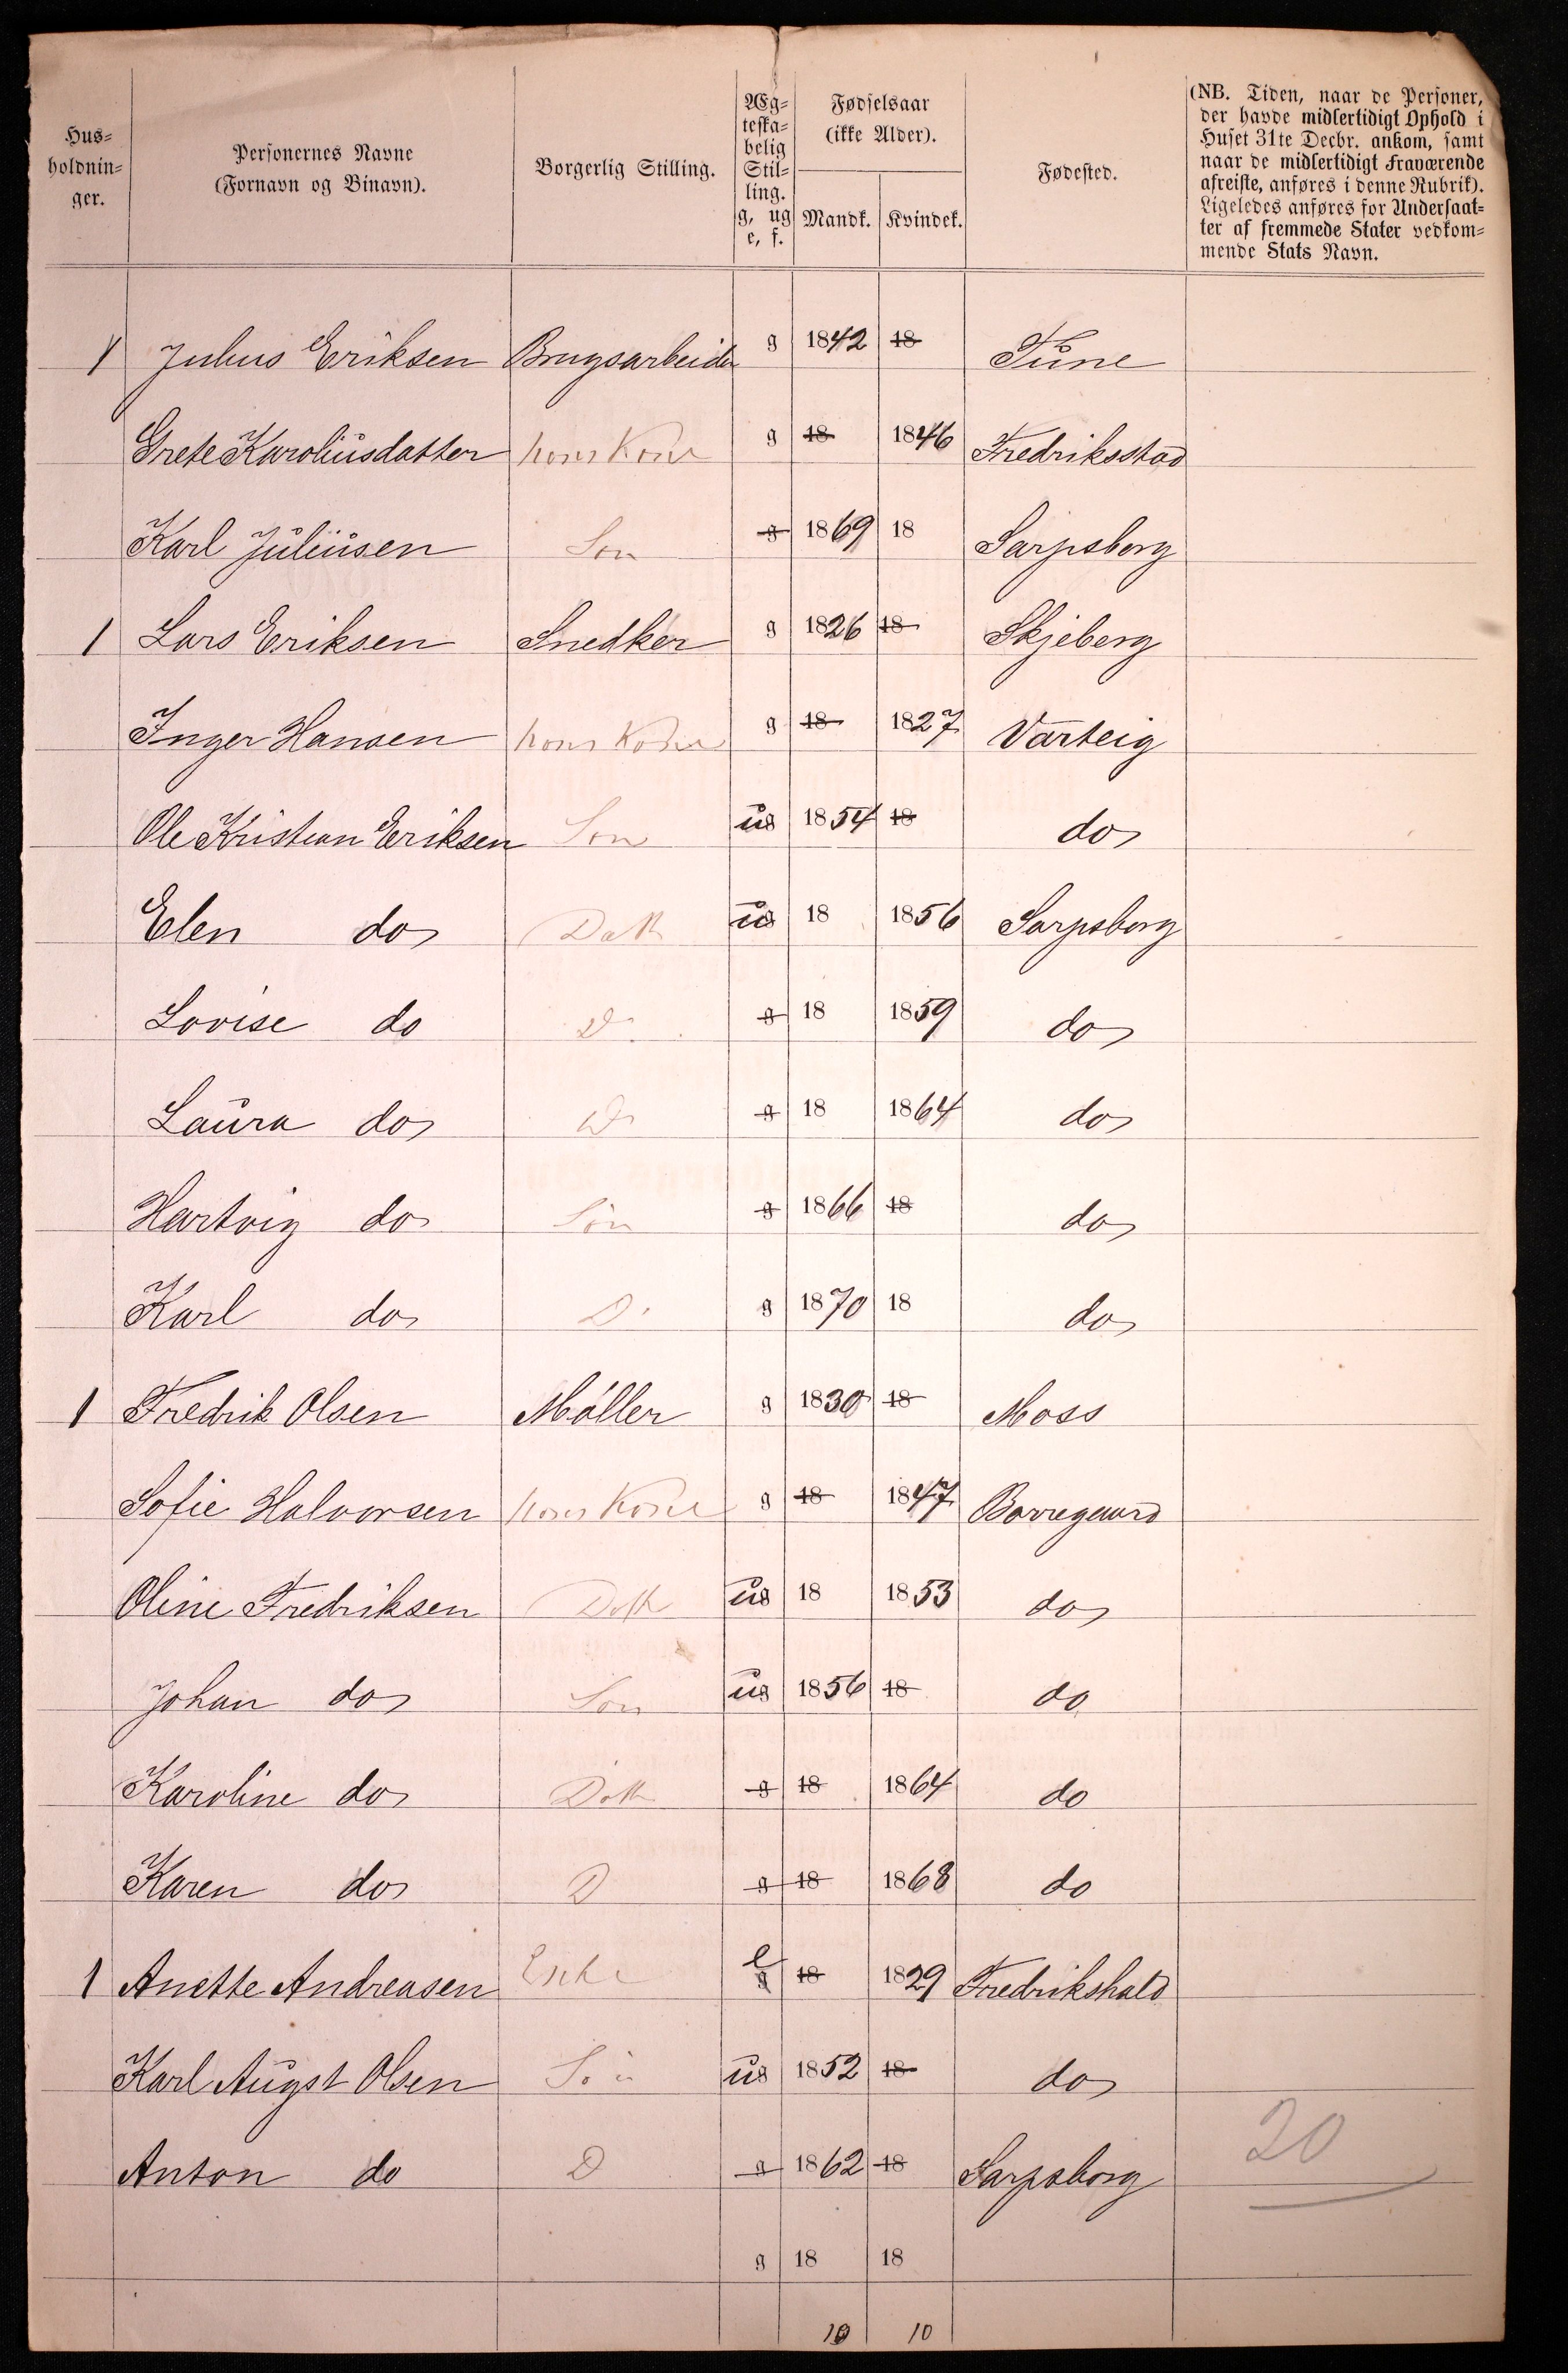 Hus-
holdnin-
ger.
Personernes Navne
(Fornavn og Binavn).
Borgerlig Stilling.
Æg-
teska-
belig
Stil-
ling.
g, ug
e, f.
Fødselsaar
(ikke Alder).
Mandk. Kvindek.
Fødested.
(NB. Tiden, naar de Personer,
der havde midlertidigt Ophold i
Huset 31te Decbr. ankom, samt
naar de midlertidigt Fraværende
afreiste, anføres i denne Rubrik).
Ligeledes anføres for Undersaat-
ter af fremmede Stater vedkom-
mende Stats Navn.
1 Julius Eriksen Brugsarbeider g 1842 18 Tune
Grete Karoliusdatter hans Kone g 18 1846 Fredriksstad
Karl Juliusen Søn g 1869 18 Sarpsborg
1 Lars Eriksen Snedker g 1826 18 Skjeberg
Inger Hansen hans Kone g 18 1827 Varteig
Ole Kristian Eriksen Søn ug 1854 18 do
Elen do Datt ug 18 1856 Sarpsborg
Lovise do D g 18 1859 do
Laura do D g 18 1864 do
Hartvig do Søn g 1866 18 do
Karl do D g 1870 18 do
1 Fredrik Olsen Møller g 1830 18 Moss
Sofie Halvorsen hans Kone g 18 1847 Borregaard
Oline Fredriksen Datt ug 18 1853 do
Johan do Søn ug 1856 18 do
Karoline do Datt g 18 1864 do
Karen do D g 18 1868 do
1 Anette Andreasen Enke e g 18 1829 Fredrikshald
Karl Augst Olsen Søn ug 1852 18 do
Anton do D g 1862 18 Sarpsborg
20
g 18 18
10 10